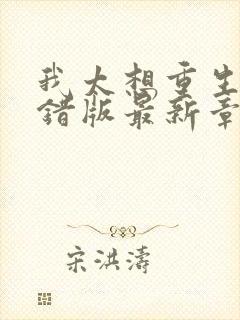 我太想重生
错版最新章
宋洪涛